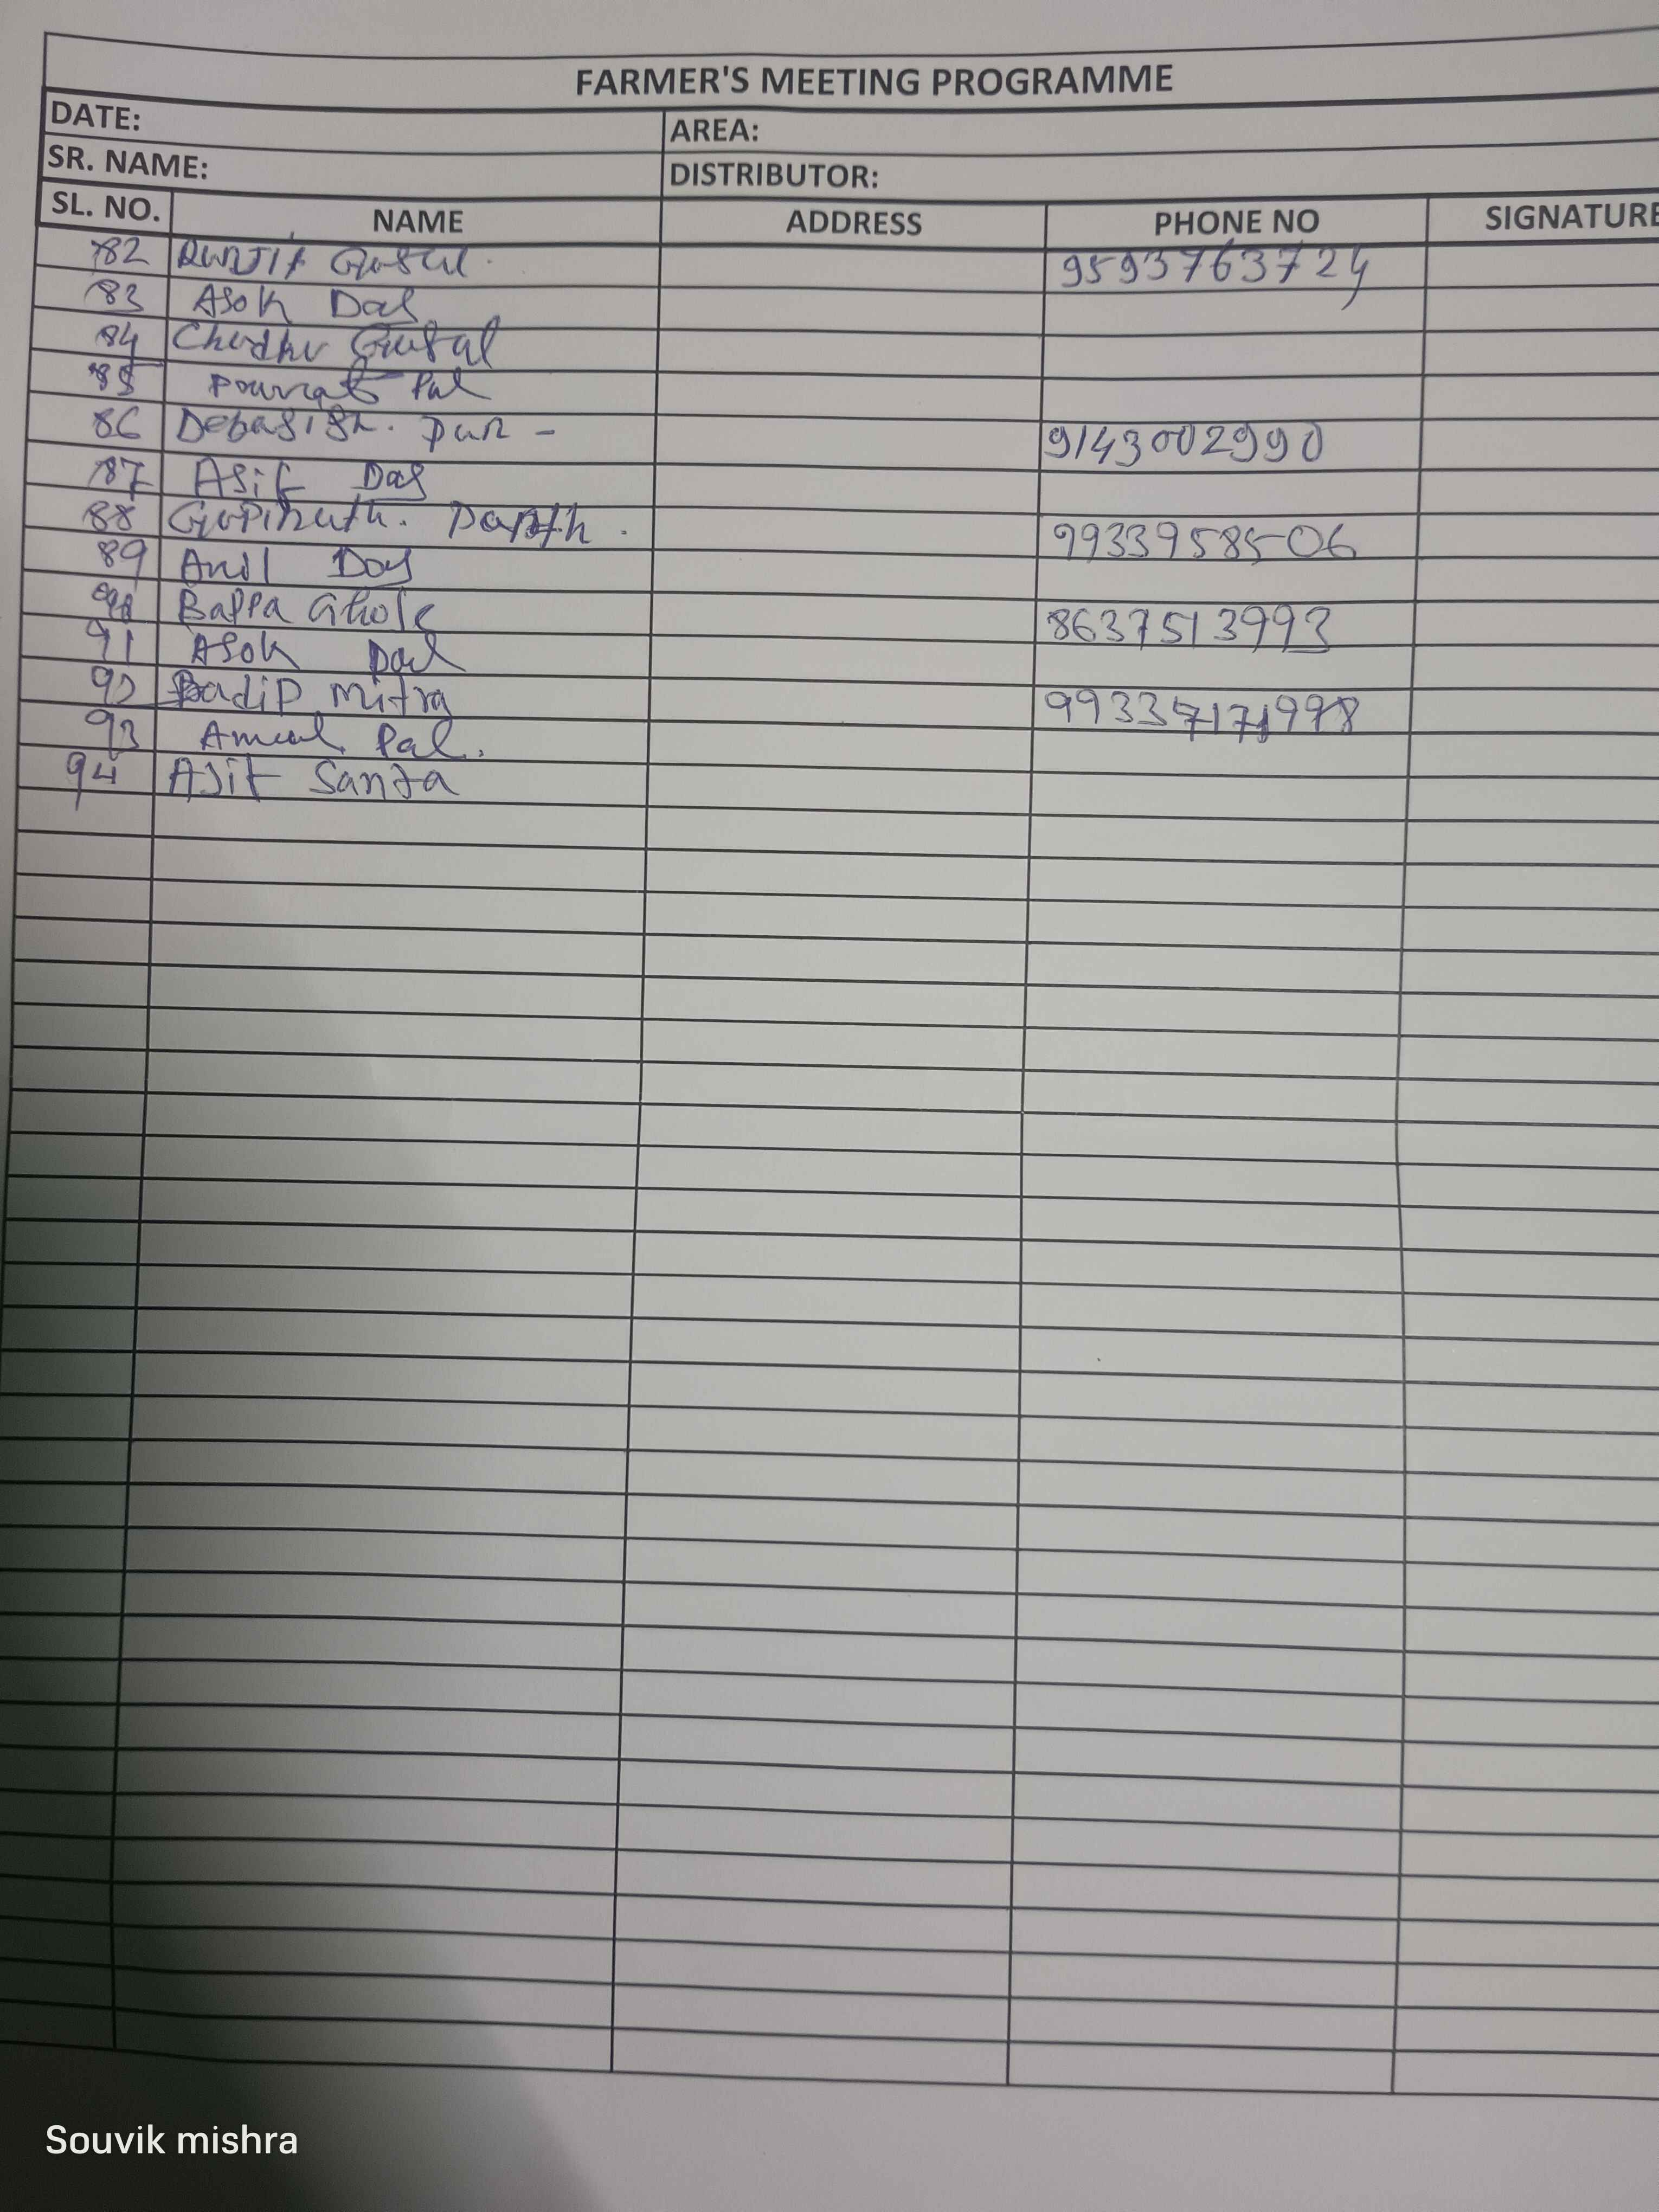 FARMER'S MEETING PROGRAMME
DATE: AREA:
SR. NAME: DISTRIBUTOR:
SL. NO. NAME ADDRESS PHONE NO SIGNATURE
82 9593763724
83 Asok Das
84
85 Pal
86 Debasish. 9143002990
87 Asit Das
88 Gopinath. 9933958506
89 Anil Das
Bappa Ghose 8637513993
91 Asok Das
92 Badip mitra
93 Amal Pal.
94 Ajit Santa
Souvik mishra